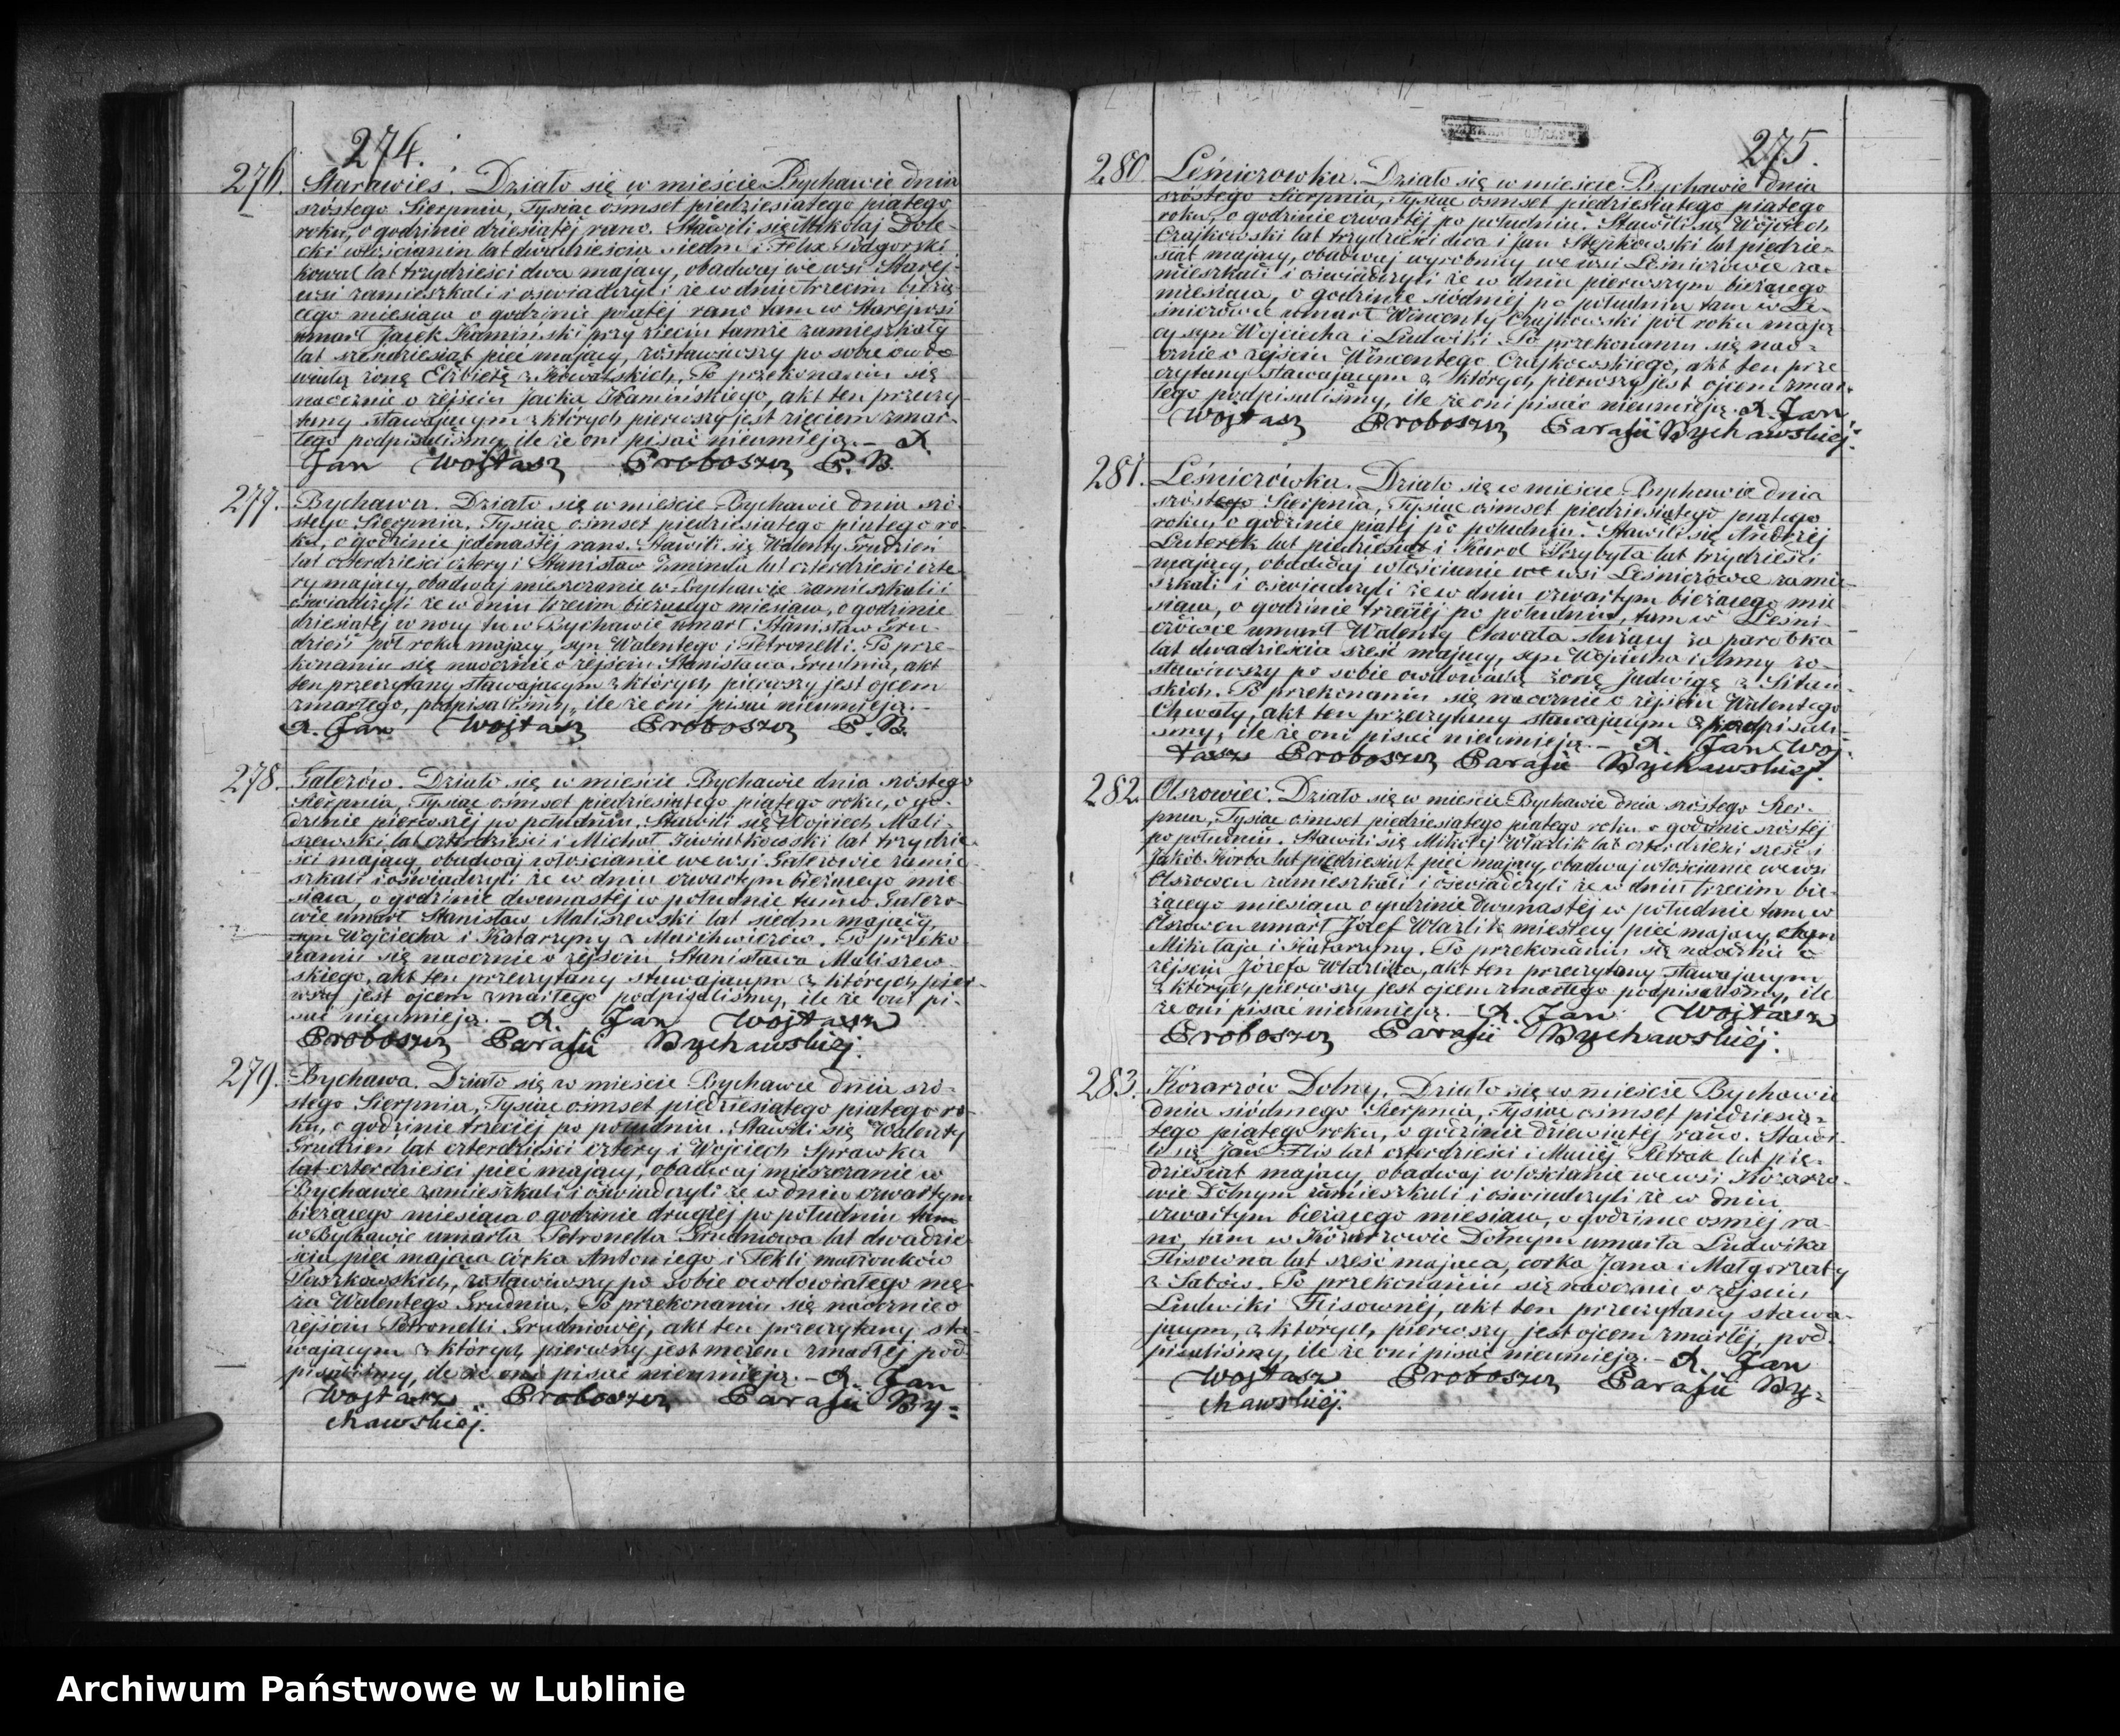 274.
276. Starawieś. Działo się w mieście Bychawie dnia
szóstego Sierpnia, Tysiąc ośmset piędziesiątego piątego
roku, o godzinie dziesiątéj rano. Stawili się Mikołaj Dole-
cki włościanin lat dwadzieścia siedm i Felix Podgorski
kowal lat trzydzieści dwa mający, obadwaj we wsi Staréj-
wsi zamieszkali i oświadczyli że w dniu trzecim bieżą-
cego miesiąca o godzinie piątéj rano tam w Staréjwsi
umarł Jacek Kamiński przy zięciu tamże zamieszkały
lat sześdziesiąt pięć mający, zostawiwszy po sobie owdo-
wiałą żonę Elżbietę z Kowalskich. Po przekonaniu się
naocznie o zejściu Jacka Kamińskiego, akt ten przeczy-
tany stawającym z których pierwszy jest zięciem zmar-
łego podpisaliśmy, ile że oni pisać nieumieją. – X.
Jan Wojtasz Proboszcz P. B.
277. Bychawa. Działo się w mieście Bychawie dnia szó-
stego Sierpnia, Tysiąc ośmset piędziesiątego piątego ro-
ku, o godzinie jedenastéj rano. Stawili się Walenty Grudzień
lat czterdzieści cztery i Stanisław Zminda lat czterdzieści czte-
ry mający, obadwaj mieszczanie w Bychawie zamieszkali i
oświadczyli że w dniu trzecim bieżącego miesiąca, o godzinie
dziesiątéj w nocy tu w Bychawie umarł Stanisław Gru-
dzień pół roku mający, syn Walentego i Petronelli. Po prze-
konaniu się naocznie o zejściu Stanisława Grudnia, akt
ten przeczytany stawającym z których pierwszy jest ojcem
zmarłego, podpisaliśmy, ile że oni pisać nieumieją. –
X. Jan Wojtasz Proboszcz P. B.
278. Gałęzów. Działo się w mieście Bychawie dnia szóstego
Sierpnia, Tysiąc ośmset piędziesiątego piątego roku, o go-
dzinie pierwszéj po południu. Stawili się Wojciech Mali-
szewski lat czterdzieści i Michał Kwiatkowski lat trzydzie-
ści mający, obadwaj włościanie we wsi Gałęzowie zamie-
szkali i oświadczyli że w dniu czwartym bieżącego mie-
siąca, o godzinie dwunastéj w południe tam w Gałęzo-
wie umarł Stanisław Maliszewski lat siedm mający,
syn Wojciecha i Katarzyny z Marchwiczów. Po przeko-
naniu się naocznie o zejściu Stanisława Maliszew-
skiego, akt ten przeczytany stawającym z których pier-
wszy jest ojcem zmarłego podpisaliśmy, ile że oni pi-
sać nieumieją. – X. Jan Wojtasz
Proboszcz Parafii Bychawskiéj.
279. Bychawa. Działo się w mieście Bychawie dnia szó-
stego Sierpnia, Tysiąc ośmset piędziesiątego piątego ro-
ku, o godzinie trzeciéj po południu. Stawili się Walenty
Grudzień lat czterdzieści cztery i Wojciech Sprawka
lat czterdzieści pięć mający, obadwaj mieszczanie w
Bychawie zamieszkali i oświadczyli że w dniu czwartym
bieżącego miesiąca o godzinie drugiéj po południu tam
w Bychawie umarła Petronella Grudniowa lat dwadzie-
ścia pięć mająca córka Antoniego i Tekli małżonków
Paszkowskich, zostawiwszy po sobie owdowiałego mę-
ża Walentego Grudnia. Po przekonaniu się naocznie o
zejściu Petronelli Grudniowéj, akt ten przeczytany sta-
wającym z których pierwszy jest mężem zmarłéj pod-
pisaliśmy, ile że oni pisać nieumieją. – X. Jan
Wojtasz Proboszcz Parafii By-
chawskiéj.
275.
280. Leśniczowka. Działo się w mieście Bychawie dnia
szóstego Sierpnia, Tysiąc ośmset piędziesiątego piątego
roku, o godzinie czwartéj po południu. Stawili się Wójciech
Czajkowski lat trzydzieści dwa i Jan Stępkowski lat piędzie-
siąt mający, obadwaj wyrobnicy we wsi Leśniczowce za-
mieszkali i oświadczyli że w dniu pierwszym bieżącego
miesiąca, o godzinie siódméj po południu tam w Le-
śniczówce umarł Wincenty Czajkowski pół roku mają-
cy syn Wojciecha i Ludwiki. Po przekonaniu się nao-
cznie o zejściu Wincentego Czajkowskiego, akt ten prze-
czytany stawającym z których pierwszy jest ojcem zmar-
łego podpisaliśmy, ile że oni pisać nieumieją. X. Jan
Wojtasz Proboszcz Parafii Bychawskiéj.
281. Leśniczówka. Działo się w mieście Bychawie dnia
szóstego Sierpnia, Tysiąc ośmset piędziesiątego piątego
roku, o godzinie piątéj po południu. Stawili się Andrzéj
Luterek lat piędziesiąt i Karol Przybyla lat trzydzieści
mający, obadwaj włościanie we wsi Leśniczówce zamie-
szkali i oświadczyli że w dniu czwartym bieżącego mie-
siąca, o godzinie trzeciéj po południu, tam w Leśni-
czówce umarł Walenty Chwała służący za parobka
lat dwadzieścia sześć mający, syn Wojciecha i Anny zo-
stawiwszy po sobie owdowiałą żonę Jadwigę z
skich. Po przekonaniu się naocznie o zejściu Walentego
Chwały, akt ten przeczytany stawającym podpisali-
śmy, ile że oni pisać nieumieją. – X. Jan Woj-
tasz Proboszcz Parafii Bychawskiéj.
282. Olszowiec. Działo się w mieście Bychawie dnia szóstego Sier-
pnia, Tysiąc ośmset piędziesiątego piątego roku o godzinie szóstéj
po południu. Stawili się Mikołaj Wlazlik lat czterdzieści sześć i
Jakób Korba lat piędziesiąt pięć mający, obadwaj włościanie we wsi
Olszowcu zamieszkali i oświadczyli że w dniu trzecim bie-
żącego miesiąca o godzinie dwunastéj w południe tam w
Olszowcu umarł Józef Wlazlik miesięcy pięć mający syn
Mikołaja i Katarzyny. Po przekonaniu się naocznie o
zejściu Józefa Wlazlika, akt ten przeczytany stawającym
z których pierwszy jest ojcem zmarłego podpisaliśmy, ile
że oni pisać nieumieją. – X. Jan Wojtasz
Proboszcz Parafii Bychawskiéj.
283. Kozarzów Dolny. Działo się w mieście Bychawie
dnia siódmego Sierpnia, Tysiąc ośmset piędziesią-
tego piątego roku, o godzinie dziewiątéj rano. Stawi-
li się Jan Flis lat czterdzieści i Maciéj Pietrak lat pię-
dziesiąt mający, obadwaj włościanie we wsi Kozarzo-
wie Dolnym zamieszkali i oświadczyli że w dniu
czwartym bieżącego miesiąca, o godzinie osméj ra-
no, tam w Kozarzowie Dolnym umarła Ludwika
Flisowna lat sześć mająca, corka Jana i Małgorzaty
z Sabów. Po przekonaniu się naocznie o zejściu
Ludwiki Flisownéj, akt ten przeczytany stawa-
jącym, z których, pierwszy jest ojcem zmarłéj, pod-
pisaliśmy, ile że oni pisać nieumieją. – X. Jan
Wojtasz Proboszcz Parafii By-
chawskiéj.
Archiwum Państwowe w Lublinie